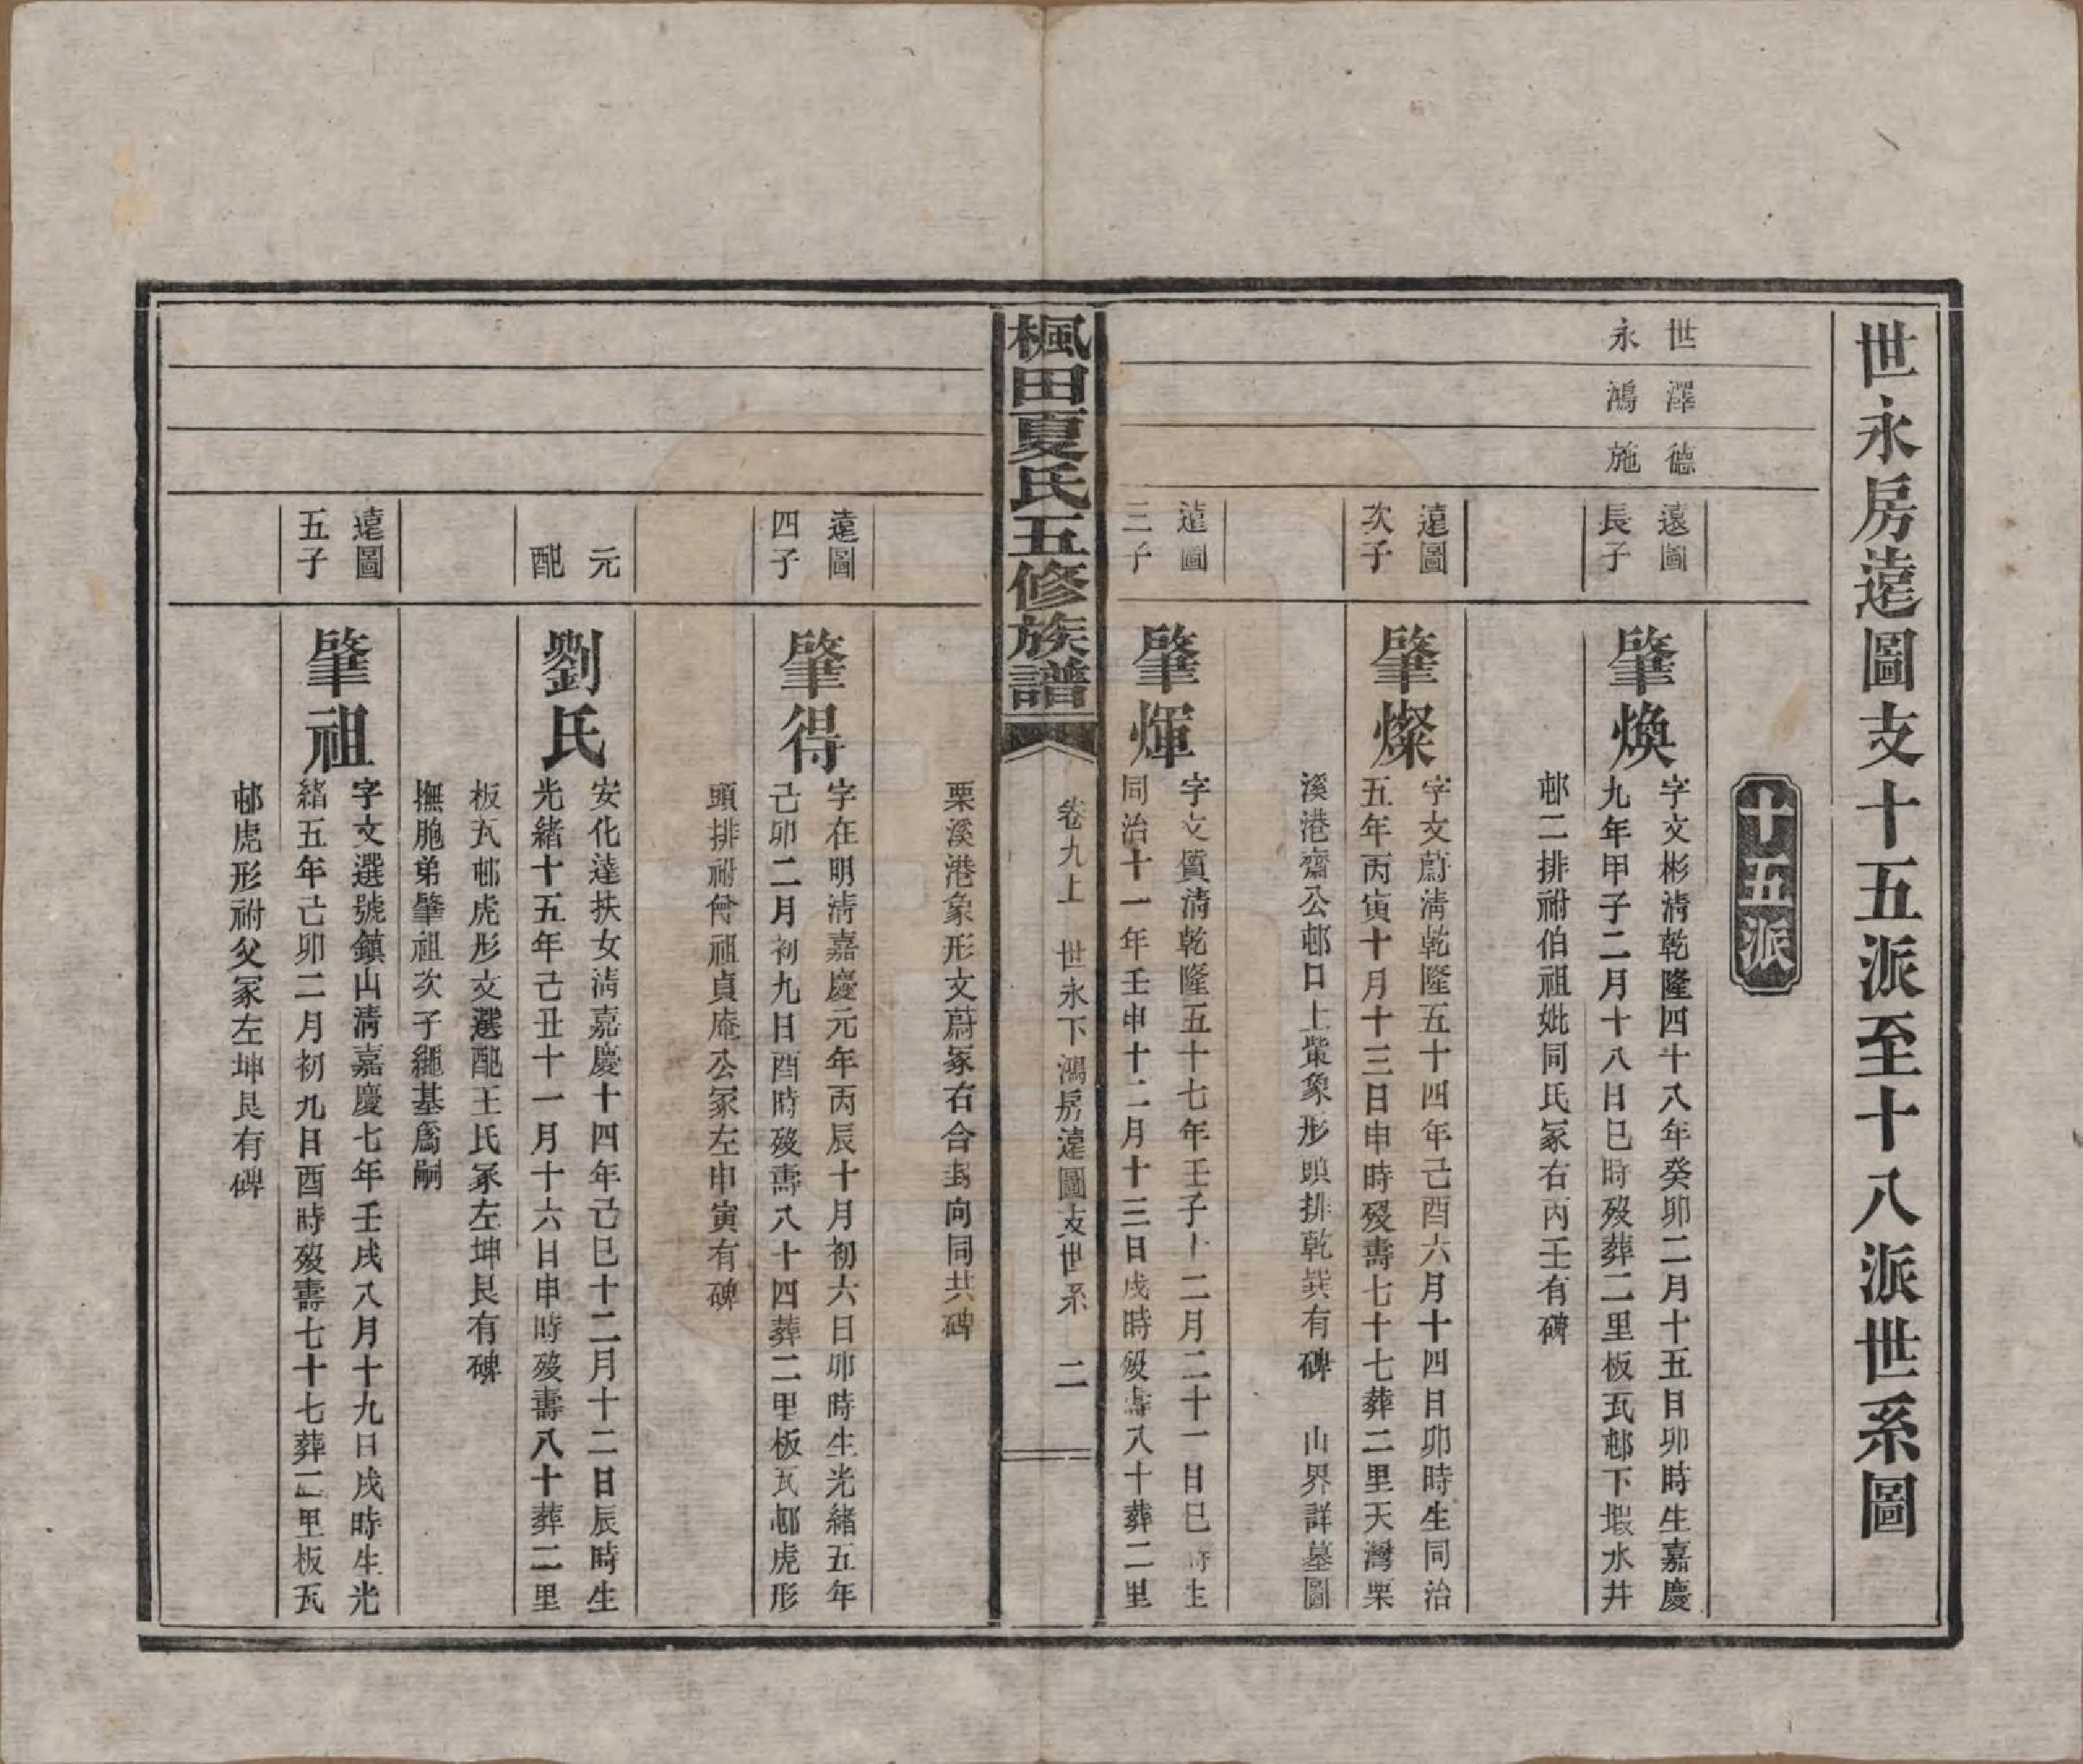 世永房遠圖支十五派至十八派世系圖
十五派
世永
澤鴻
德施
遠圖
長子
肇煥
字文彬淸乾隆四十八年癸卯二月十五日卯時生嘉慶
九年甲子二月十八日巳時歿葬二里板瓦邨下塅水井
邨二排祔伯祖妣同氏冢右丙壬有碑
遠圖
次子
肇燦
字文蔚淸乾隆五十四年己酉六月十四日卯時生同治
五年丙寅十月十三日申時歿壽七十七葬二里天灣栗
溪港齋公邨口上甞象形頭排乾巽有碑 山界詳墓圖
遠圖
三子
肇煇
字文質淸乾隆五十七年壬子十二月二十一日巳時生
同治十一年壬申十二月十三日戌時歿壽八十葬二里
楓田夏氏五修族譜
卷九上 世永下鴻房遠圖支世系 二
栗溪港象形文蔚冢右合封向同共碑
遠圖
四子
肇得
字在明淸嘉慶元年丙辰十月初六日卯時生光緒五年
己卯二月初九日酉時歿壽八十四葬二里板瓦邨虎形
頭排祔曾祖貞庵公冢左申寅有碑
元配
劉氏
安化達扶女淸嘉慶十四年己巳十二月十二日辰時生
光緒十五年己丑十一月十六日申時歿壽八十葬二里
板瓦邨虎形文選配王氏冢左坤艮有碑
撫胞弟肇祖次子繩基爲嗣
遠圖
五子
肇祖
字文選號鎭山淸嘉慶七年壬戌八月十九日戌時生光
緒五年己卯二月初九日酉時歿壽七十七葬二里板瓦
邨虎形祔父冢左坤艮有碑